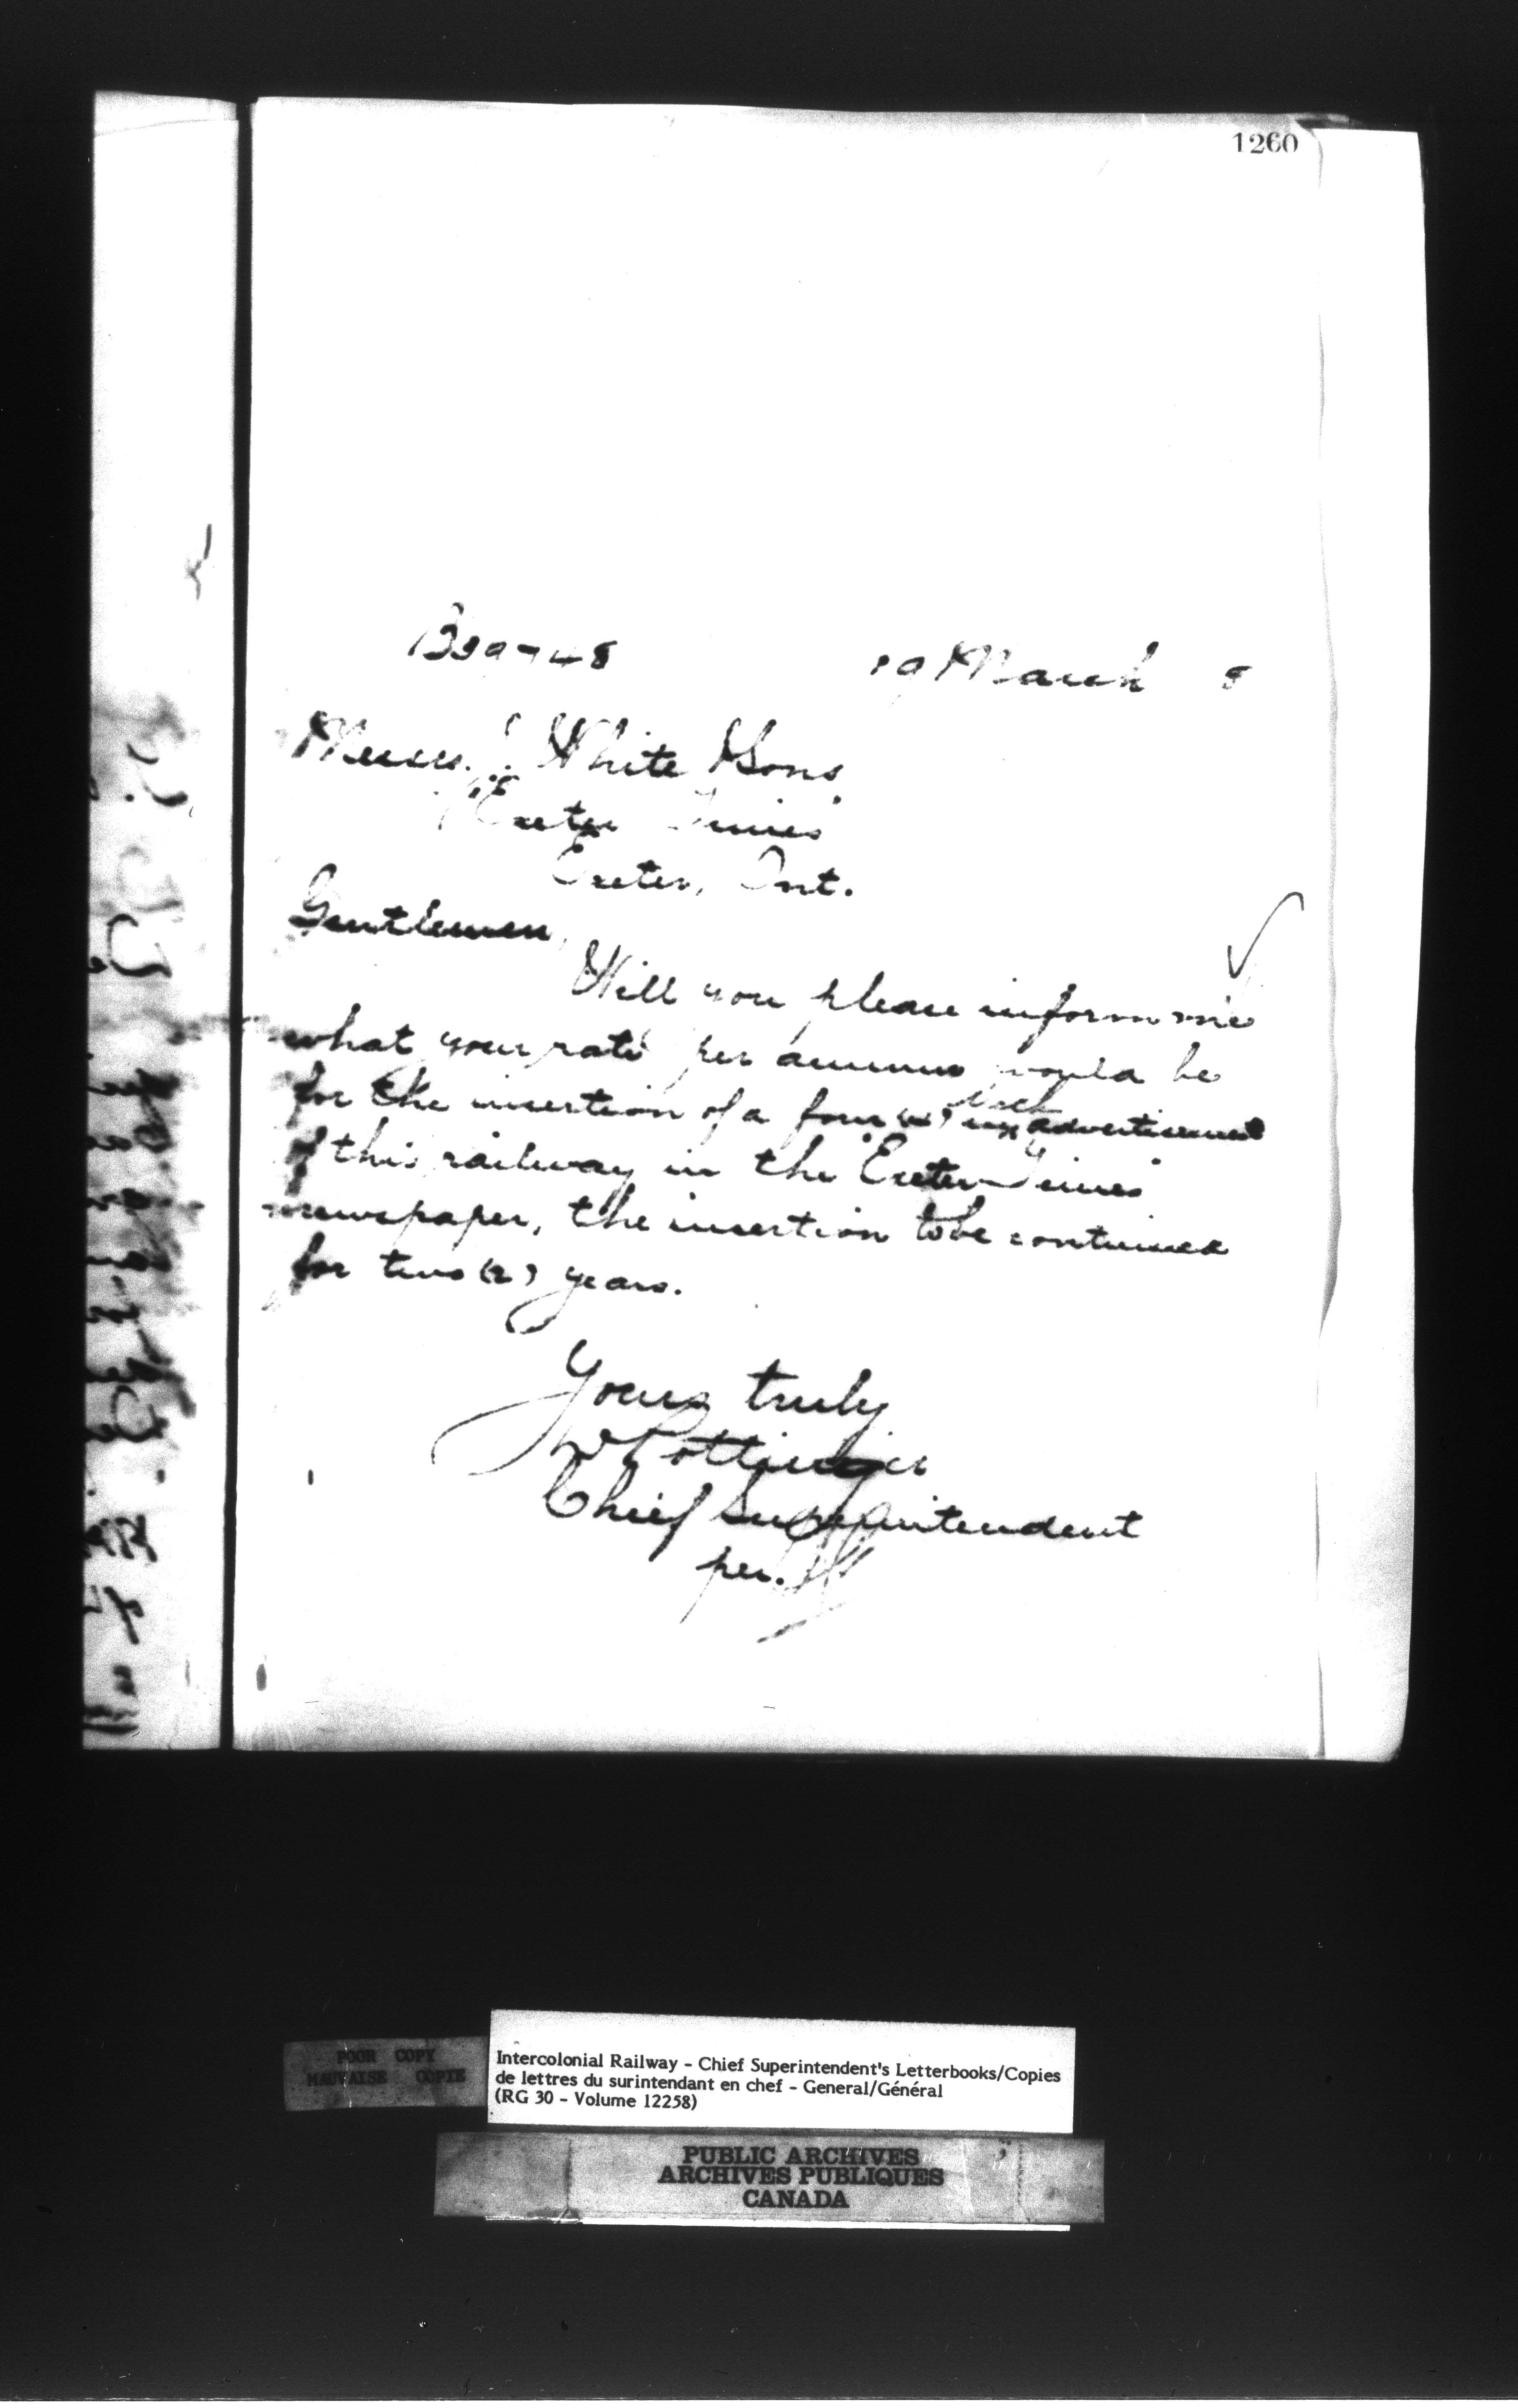 1260
19 March 8
Messrs. White & Sons
"Exeter Times"
Exeter, Ont.
Gentlemen,
Will you please inform me
what your rate per annum would be
for the insertion of a four (4) inch advertisement
of this railway in the Exeter Times
newspaper, the insertion to be continued
for two (2) years.
Yours truly
D Pottinger
Chief Superintendent
per.
POOR COPY
MAUVAISE COPIE
Intercolonial Railway - Chief Superintendent's Letterbooks/Copies
de lettres du surintendant en chef - General/Général
(RG 30 - Volume 12258)
PUBLIC ARCHIVES
ARCHIVES PUBLIQUES
CANADA